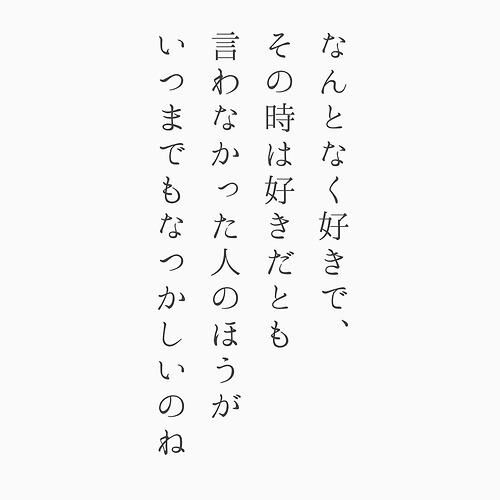 なんとなく好きで、
その時は好きだとも
言わなかった人のほうが
いつまでもなつかしいのね